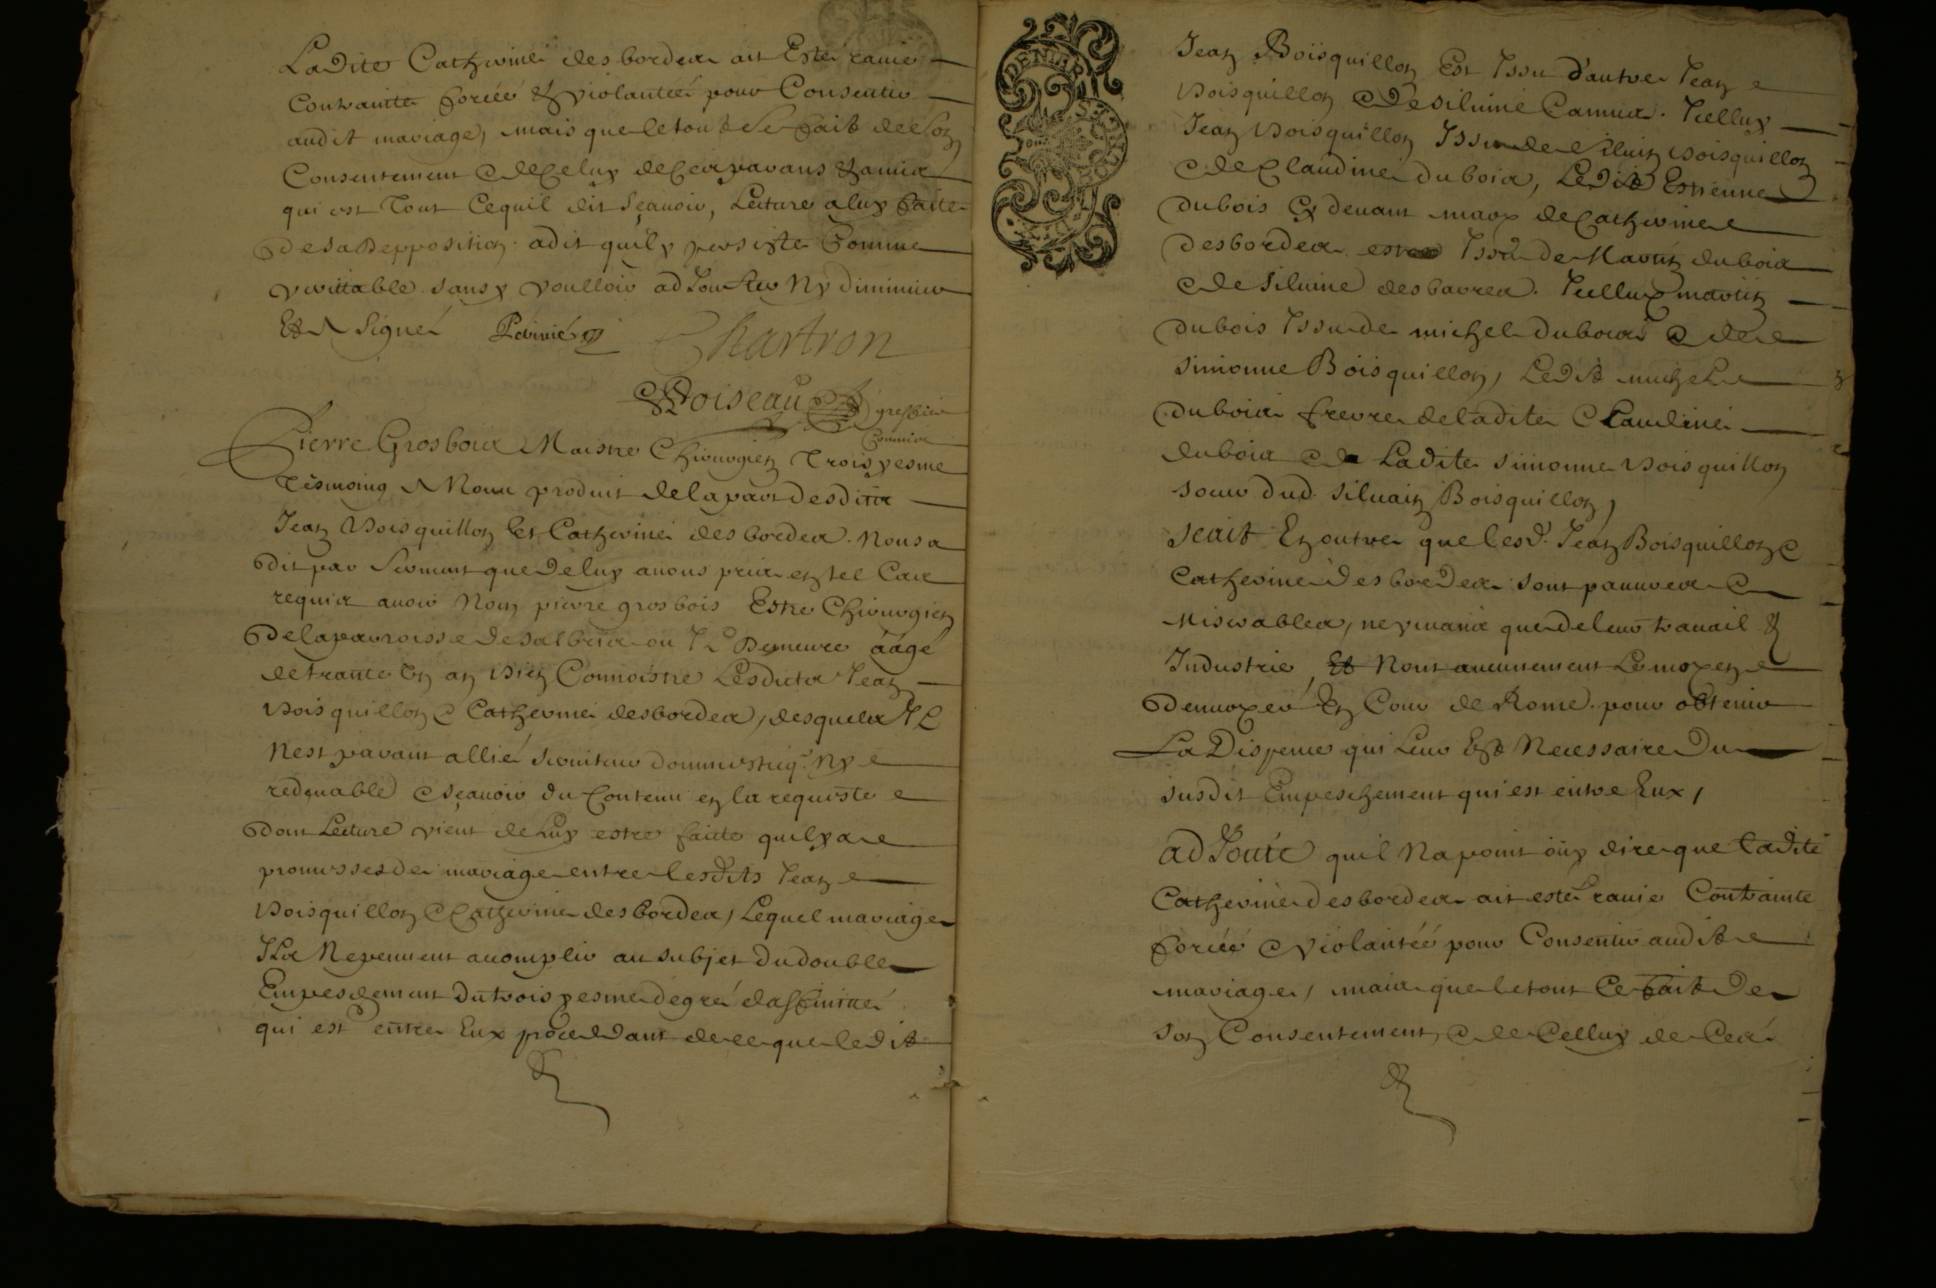 Ladite Catherine desbordes ait Esté ravie
Contrainte forcée & violantée pour Consentir
audit mariage, mais que le tout se fait de son
Consentement & de Celuy de Ces parans & amis
qui est Tout Ce quil dit Sçavoir, Lecture a luy faite
de sa Depposition a dit quil y persiste Comme
veritable sans y voulloir adjouster Ny diminuer
Et a Signé
Chartron
greffier
Commis
Pierre Grosbois Maistre Chirurgien Troisyesme
Tesmoing A Nous produit de la part desdits
Jean Boisquillon Et Catherine desbordes. Nous a
dit par Serment que de luy avons pris en tel Cas
requis avoir Nom pierre grosbois Estre Chirurgien
de la parroisse de Salbris ou Il Demeure aagé
de trante Un an bien Connoistre Lesdicts Jean
Boisquillon & Catherine desbordes, desquels Il
Nest parant allié serviteur dommestiq. Ny
redevable & sçavoir du Contenu en la requeste
dont Lecture vient de Luy estre faitte quil y a
promesses de mariage entre lesdits Jean
Boisquillon & Catherine desbordes, Lequel mariage
Ils Ne peuvent acomplir au subjet du double
Empeschement du troisyesme degré d'affinité
qui est entre Eux procedant de ce que ledit
DENIER
Jean Boisquillon Est Issu d'autre Jean
Boisquillon & de Silvine Camus. Icelluy
Jean Boisquillon Issu de Silvin Boisquillon
& de Claudine dubois, Ledit Estienne
dubois Cy devant mary de Catherine
desbordes est Issu de Martin dubois
& de Silvine desbarres. Icelluy martin
dubois Issu de michel dubois & de
simonne Boisquillon, Ledit michel
dubois frerre de ladite Claudine
dubois & de Ladite simonne Boisquillon
soeur dud. Silvain Boisquillon,
scait En outre que lesd. Jean Boisquillon &
Catherine desbordes sont pauvres &
Miserables, ne vivants que de leur travail &
Industrie, Et N'ont aucunement Le moyen
d'envoyer En Cour de Rome pour obtenir
La Dispence qui Leur Est Necessaire Du
susdit Empeschement qui est entre Eux,
adJouté quil Na point ouy dire que Ladite
Catherine desbordes ait esté ravie Contrainte
forcée & violantée pour Consentir audit
mariage, mais que le tout Ce fait De
son Consentement & de Celluy de Ces